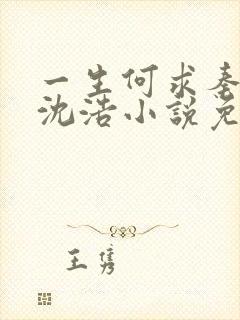 一生何求
沈浩小說免
王隽